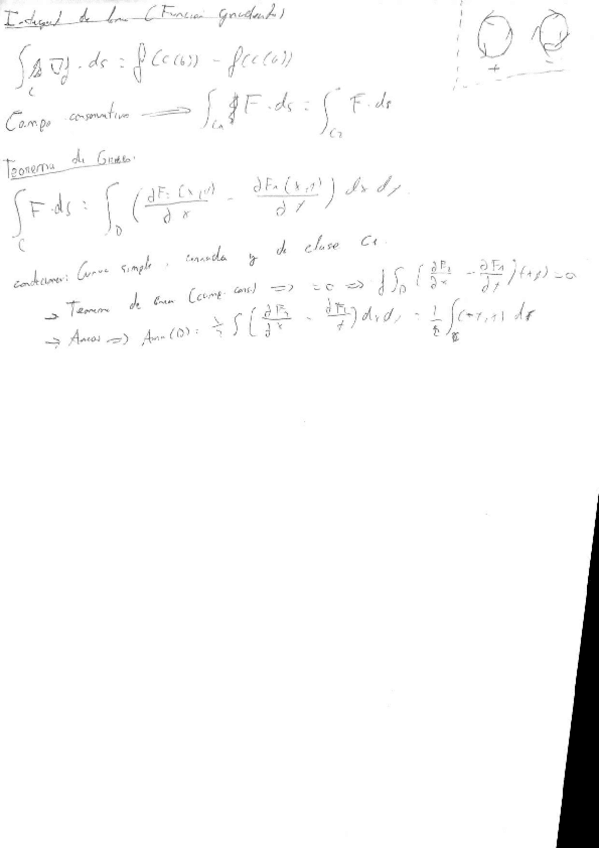 Integral de línea (Función gradiente)
∫_C ∇f · ds = f(c(b)) - f(c(b))
Campo conservativo ⟹ ∫_{C1} F · ds = ∫_{C2} F · ds
+ -
Teorema de Green:
∫_C F · ds = ∫_D (∂F2(x,y)/∂x - ∂F1(x,y)/∂y) dx dy.
condiciones: Curva simple, cerrada y de clase C1.
→ Teorema de (comp. cons) => =0 => ∫∫_D (∂F2/∂x - ∂F1/∂y) = 0
→ Areas => Area(D) = 1/2 ∫(∂F2/∂x - ∂F1/∂y) dx dy = 1/2 ∫(-y,x) ds